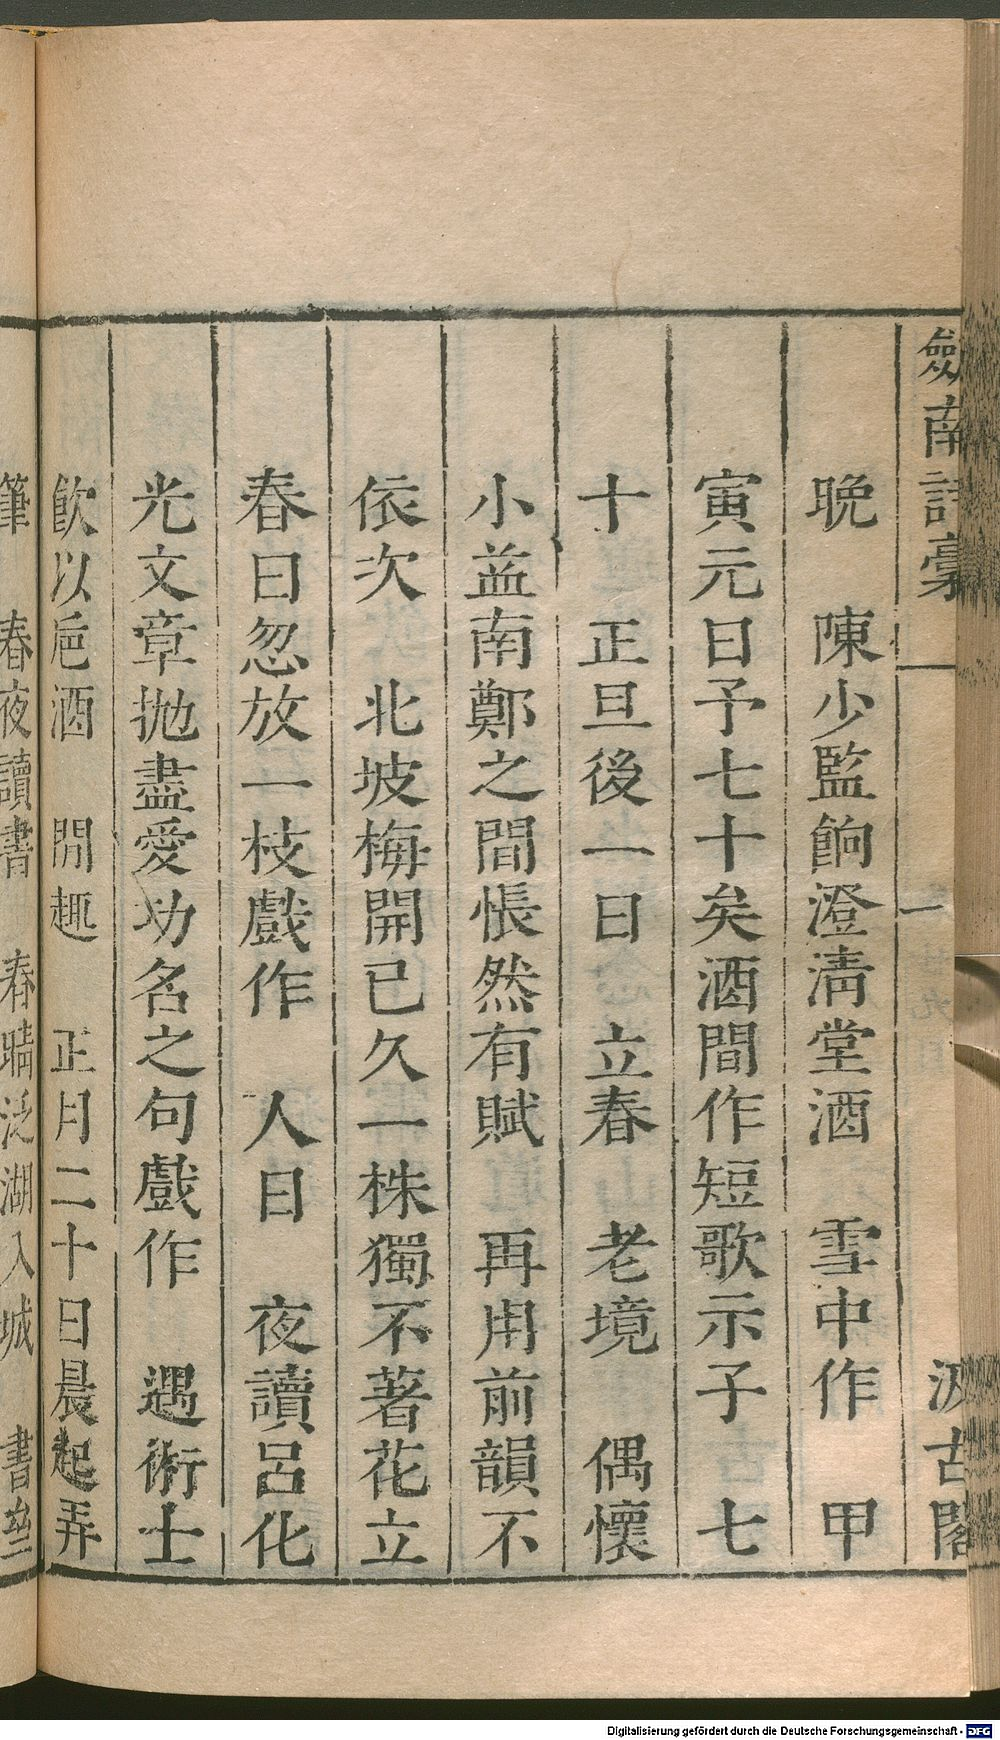 劒南詩稾 一 汲古閣
晩 陳少監餉澄淸堂酒 雪中作 甲
寅元日予七十矣酒間作短歌示子 七
十 正旦後一日 立春 老境 偶懷
小益南鄭之間悵然有賦 再用前韻 不
依次 北坡梅開已久一株獨不著花立
春日忽放一枝戲作 人日 夜讀呂化
光文章拋盡愛功名之句戲作 遇術士
飮以巵酒 閒趣 正月二十日晨起弄
筆 春夜讀書 春晴泛湖入城 書
Digitalisierung gefördert durch die Deutsche Forschungsgemeinschaft - DFG